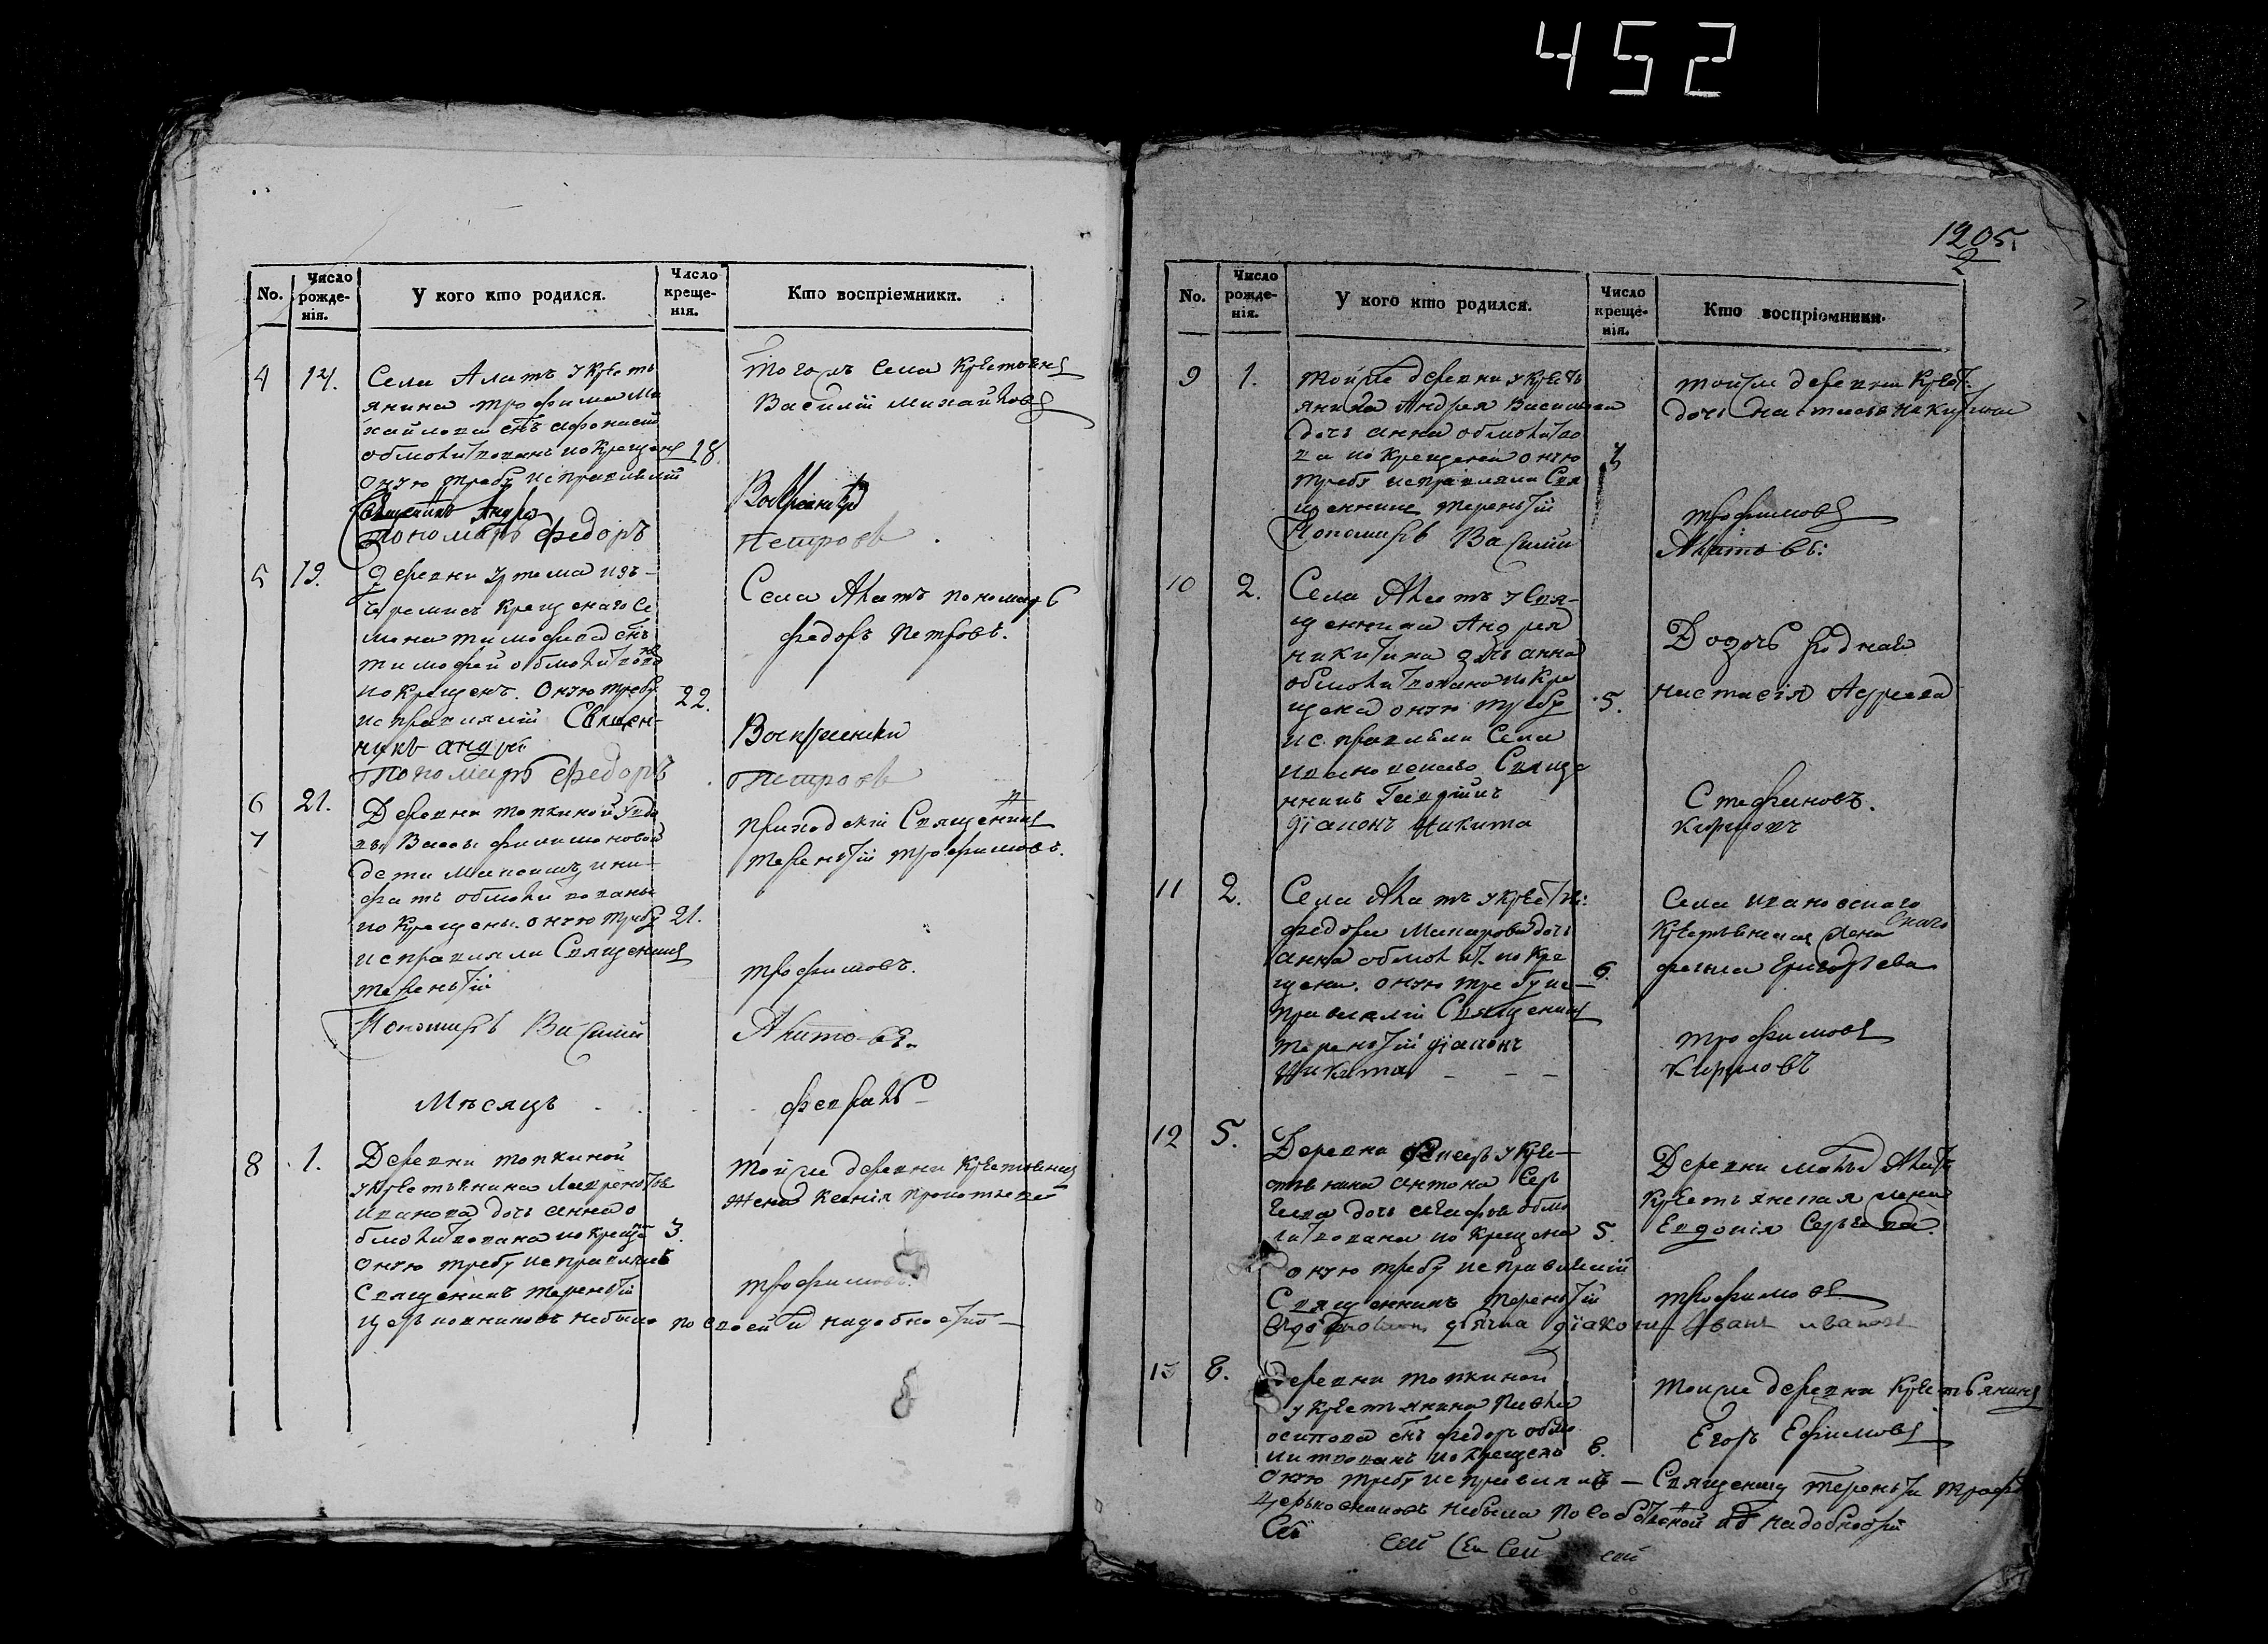 452
No.
Число рожде-нія.
У кого кто родился.
Число креще-нія.
Кто воспріемники.
4
14.
Села Алатъ у Кресть
янина трофима Ми
хайлова снъ афонасій
обмолитвованъ и окрещенъ
18.
оную требу исправлялій
Священникъ Андрей
Пономарь Федоръ
тогожъ села Крестьянинъ
Василій михайловъ
Воскресенскій
Петровъ
5
19.
деревни
черемисъ крещенаго Се
мена тимофеева снъ
тимофей обмолитвованъ
и окрещенъ. Оную требу
22.
исправлялій Священ-
никъ андрей
Пономарь Федоръ
Села Алатъ пономарь
федоръ петровъ.
Воскресенскій
Петровъ
6
7
21.
Деревни топкиной у вдо
вы филимоновой
дети
обмолитвованы
и окрещены. оную требу
21.
исправляли Священникъ
терентій
Пономарь Василій
приходскій Священникъ
терентій трофимовъ.
трофимовъ.
Алатовъ.
Мѣсяцъ
февраль
8
1.
Деревни топкиной
у Крестьянина лаврентья
иванова дочь анна о
бмолитвована и окрещена
3.
оную требу исправлялъ
Священникъ терентій
церковниковъ небыло по своей надобности
той же деревни Крестьянина
жена ксенія
трофимовъ.
1205.
2
No.
Число рожде-нія.
У кого кто родился.
Число креще-нія.
Кто воспріемники.
9
1.
той же деревни у Кресть
янина Андрея Василева
дочь анна обмолитво
ва и окрещена оную
требу исправляли Свя
щенникъ терентій
Пономарь Василій
той же деревни Крест:
дочь настасья
трофимовъ
Алатовъ:
10
2.
Села Алатъ у Свя-
щенника Андрея
никитина дочь анна
обмолитвована и окре
щена оную требу
5.
исправляли Села
ивановскаго Свяще
нникъ Георгій
діаконъ Никита
Дочь родная
настасія Адреева
Стефановъ.
Кириловъ
11
2.
Села Алатъ у Крестья:
федора Макарова дочь
анна обмолит. и окре
щена. оную требу ис-
6.
правлялій Священникъ
терентій діаконъ
Никита
Села ивановскаго
Крестьянская жена
фекла Григорьева
трофимовъ
Кириловъ
12
5.
Деревни у Кре-
стьянина антона Сер
геева дочь агафья обмо
литвована и окрещена
5.
оную требу исправлялій
Священникъ терентій
діакона Иванъ ивановъ
Деревни малыя Алаты
Крестьянская жена
Евдокія Сергеева.
трофимовъ
13
8.
Деревни топкиной
у Крестьянина Павла
осипова снъ федоръ обмо
литвованъ и окрещенъ
8.
оную требу исправлялъ — Священникъ терентій трофи
Церковниковъ небыло по собственной надобности
той же деревни Крестьянинъ
Егоръ Ефимовъ
Сей
сей сей сей сей